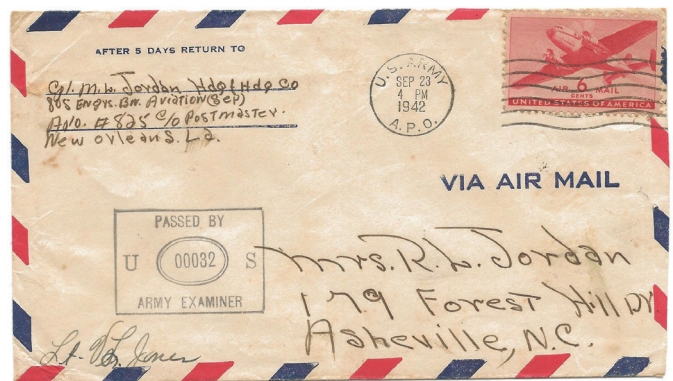 AFTER 5 DAYS RETURN TO
Cpl. M. L. Jordan Hdq & Hdq Co
805 Engrs. Bn. Aviation (Sep)
A.P.O. # 825 c/o Postmaster.
New Orleans. La.
U.S. ARMY
SEP 23
4 PM
1942
A.P.O.
AIR 6 MAIL
CENTS
UNITED STATES OF AMERICA
VIA AIR MAIL
PASSED BY
U 00032 S
ARMY EXAMINER
Lt. V. L. Jones
Mrs. R. L. Jordan
179 Forest Hill Dr.
Asheville, N.C.